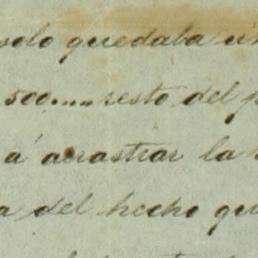 solo quedaba un
500.... resto del p
á arrastrar la
a del hecho qu